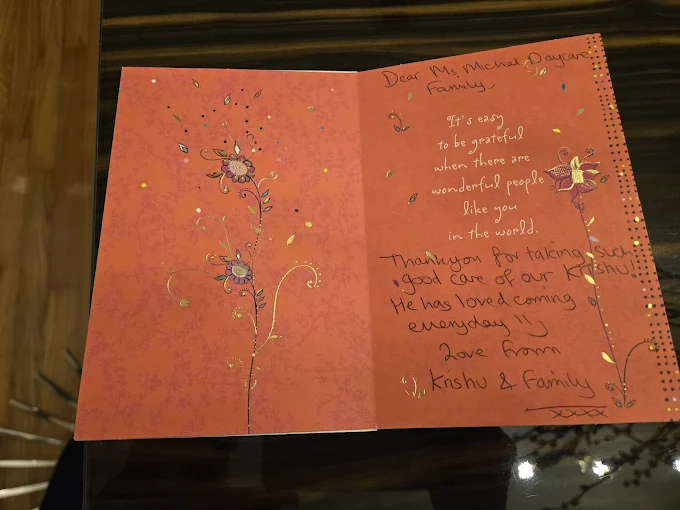 Dear Ms. Michal Daycare
Family
It's easy
to be grateful
when there are
wonderful people
like you
in the world.
Thankyou for taking such
good care of our Krishu!
He has loved coming
everyday !! :)
Love from
Krishu & Family
xxxx